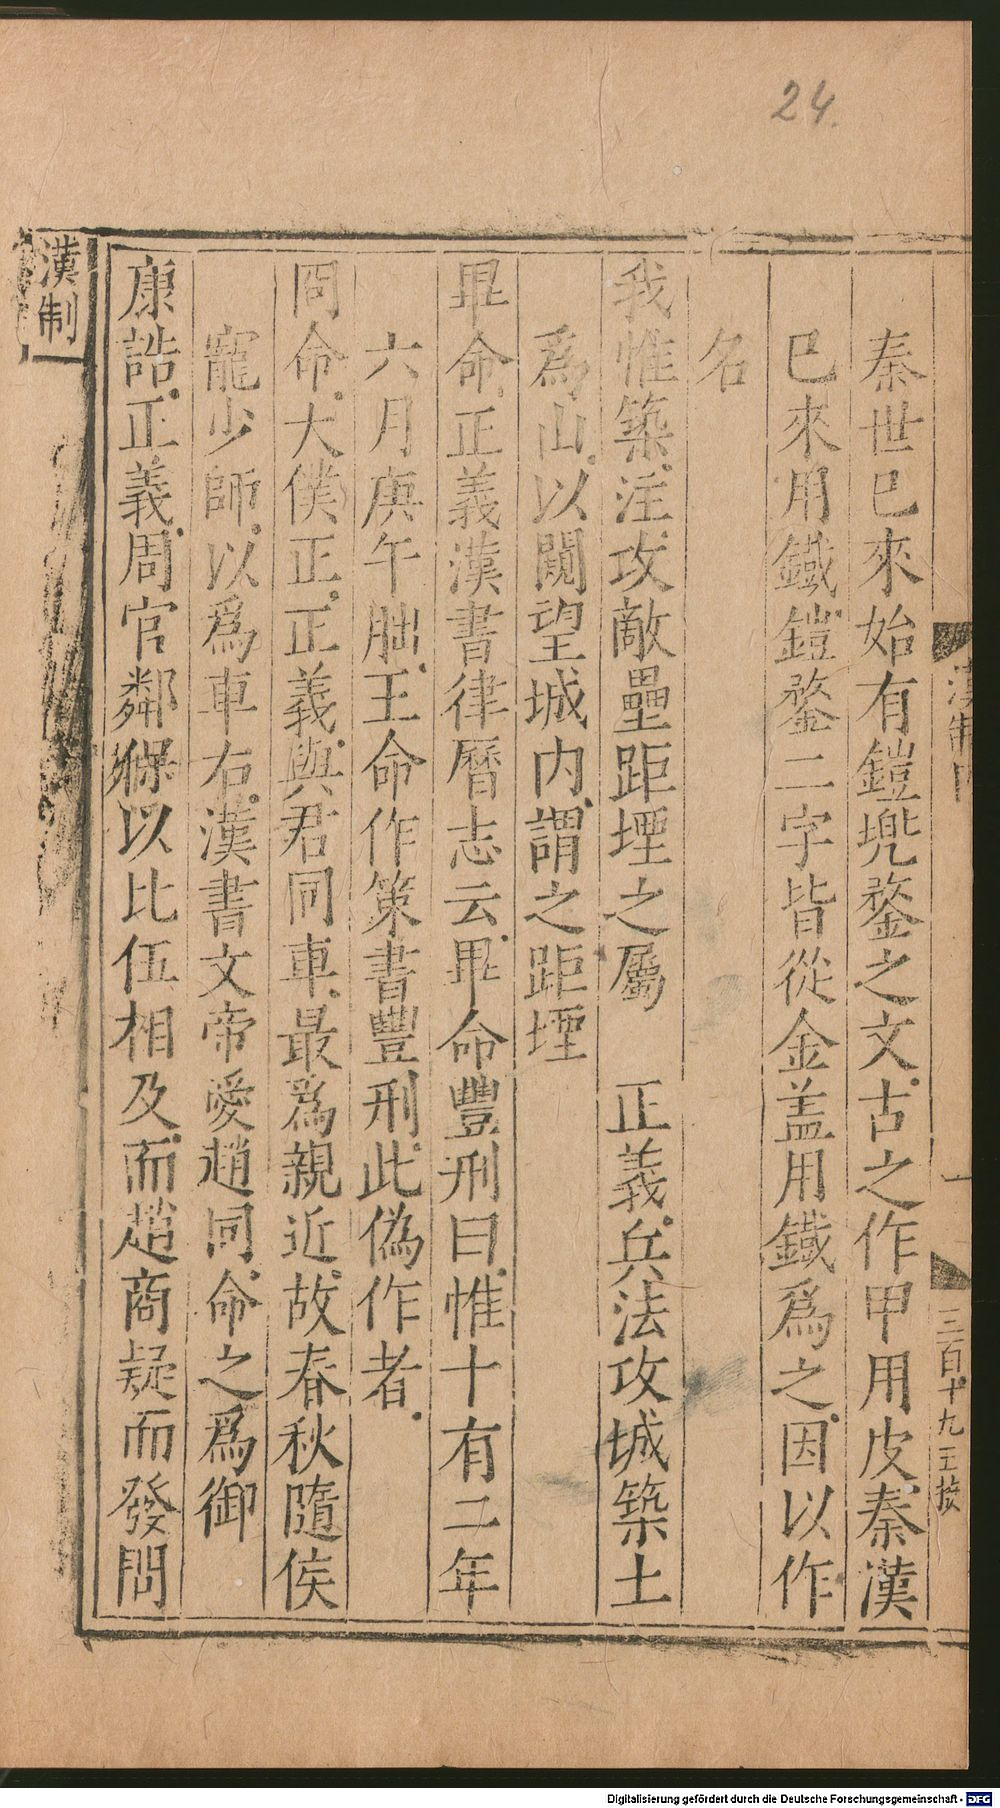 24.
漢制
一
三百十九
秦世已來始有鎧兠鍪之文古之作甲用皮秦漢
已來用鐵鎧鍪二字皆從金盖用鐵爲之因以作
名
我惟築注攻敵壘距堙之屬　正義兵法攻城築土
爲山以闚望城内謂之距堙
畢命正義漢書律曆志云畢命豐刑曰惟十有二年
六月庚午朏王命作策書豐刑此偽作者
冏命大僕正正義與君同車最爲親近故春秋隨侯
寵少師以爲車右漢書文帝愛趙同命之爲御
康誥正義周官鄰保以比伍相及而趙商疑而發問
漢制
Digitalisierung gefördert durch die Deutsche Forschungsgemeinschaft - DFG